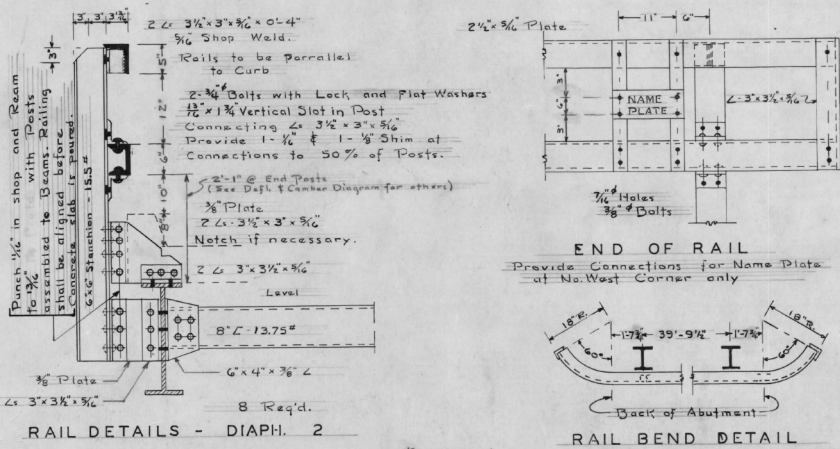 3" 3" 3 1/2"
3"
2 Ls 3 1/2" x 3" x 5/16" x 0'-4"
5/16" Shop Weld.
Rails to be parrallel
to Curb
5"
12"
6"
10"
8"
2 - 3/4"ø Bolts with Lock and Flat Washers
13/16" x 1 3/4" Vertical Slot in Post
Connecting Ls 3 1/2" x 3" x 5/16"
Provide 1 - 1/16" & 1 - 1/8" Shim at
Connections to 50% of Posts.
2'-1" @ End Posts
(See Defl. & Camber Diagram for others)
3/8" Plate
2 Ls - 3 1/2" x 3" x 5/16"
Notch if necessary.
2 Ls 3" x 3 1/2" x 5/16"
Level
8" [ - 13.75#
6" x 4" x 3/8" L
3/8" Plate
Ls 3" x 3 1/2" x 5/16"
8 Req'd.
Punch 11/16" in shop and Ream
to 13/16" with Posts
assembled to Beams. Railing
shall be aligned before
Concrete slab is poured.
6"x6" Stanchion - 15.5#
RAIL DETAILS - DIAPH. 2
2 1/2" x 5/16" Plate
11" 6"
3"
6"
3"
NAME
PLATE
L - 3" x 3 1/2" x 5/16"
7/16"ø Holes
3/8"ø Bolts
END OF RAIL
Provide Connections for Name Plate
at No. West Corner only
18"R. 18"R.
1'-7 3/4" 39'-9 1/2" 1'-7 3/4"
60° 60°
Back of Abutment
RAIL BEND DETAIL